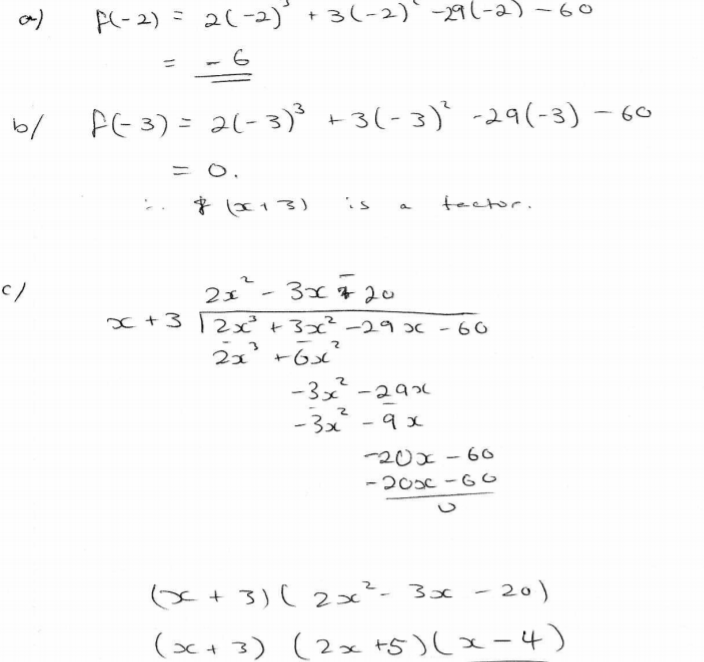 a) f(-2) = 2(-2)³ + 3(-2)² -29(-2) - 60
= -6
b/ f(-3) = 2(-3)³ + 3(-3)² -29(-3) - 60
= 0.
∴ (x+3) is a factor.
c/ 2x² - 3x - 20
x + 3 | 2x³ + 3x² - 29x - 60
2x³ + 6x²
-3x² - 29x
-3x² - 9x
-20x - 60
-20x - 60
0
(x + 3)( 2x² - 3x - 20)
(x + 3) (2x +5)(x - 4)